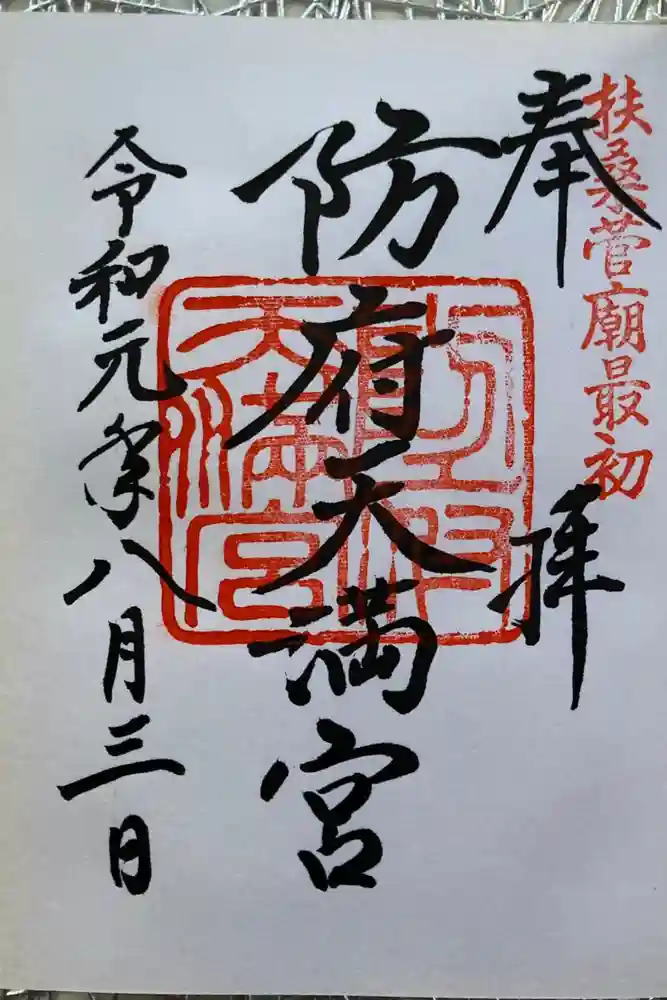 扶桑菅廟最初
奉拝
防府天満宮
令和元年八月三日
天満宮